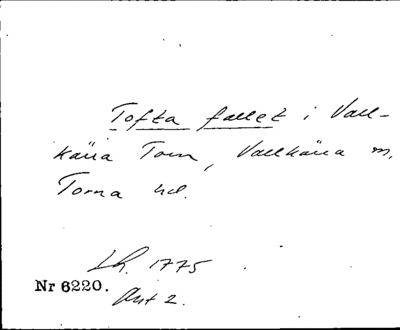 Tofta fallet i Vall-
kärra Torn, Vallkärra sn,
Torna hd.
Lh. 1775
Nr 6220.
Akt 2.